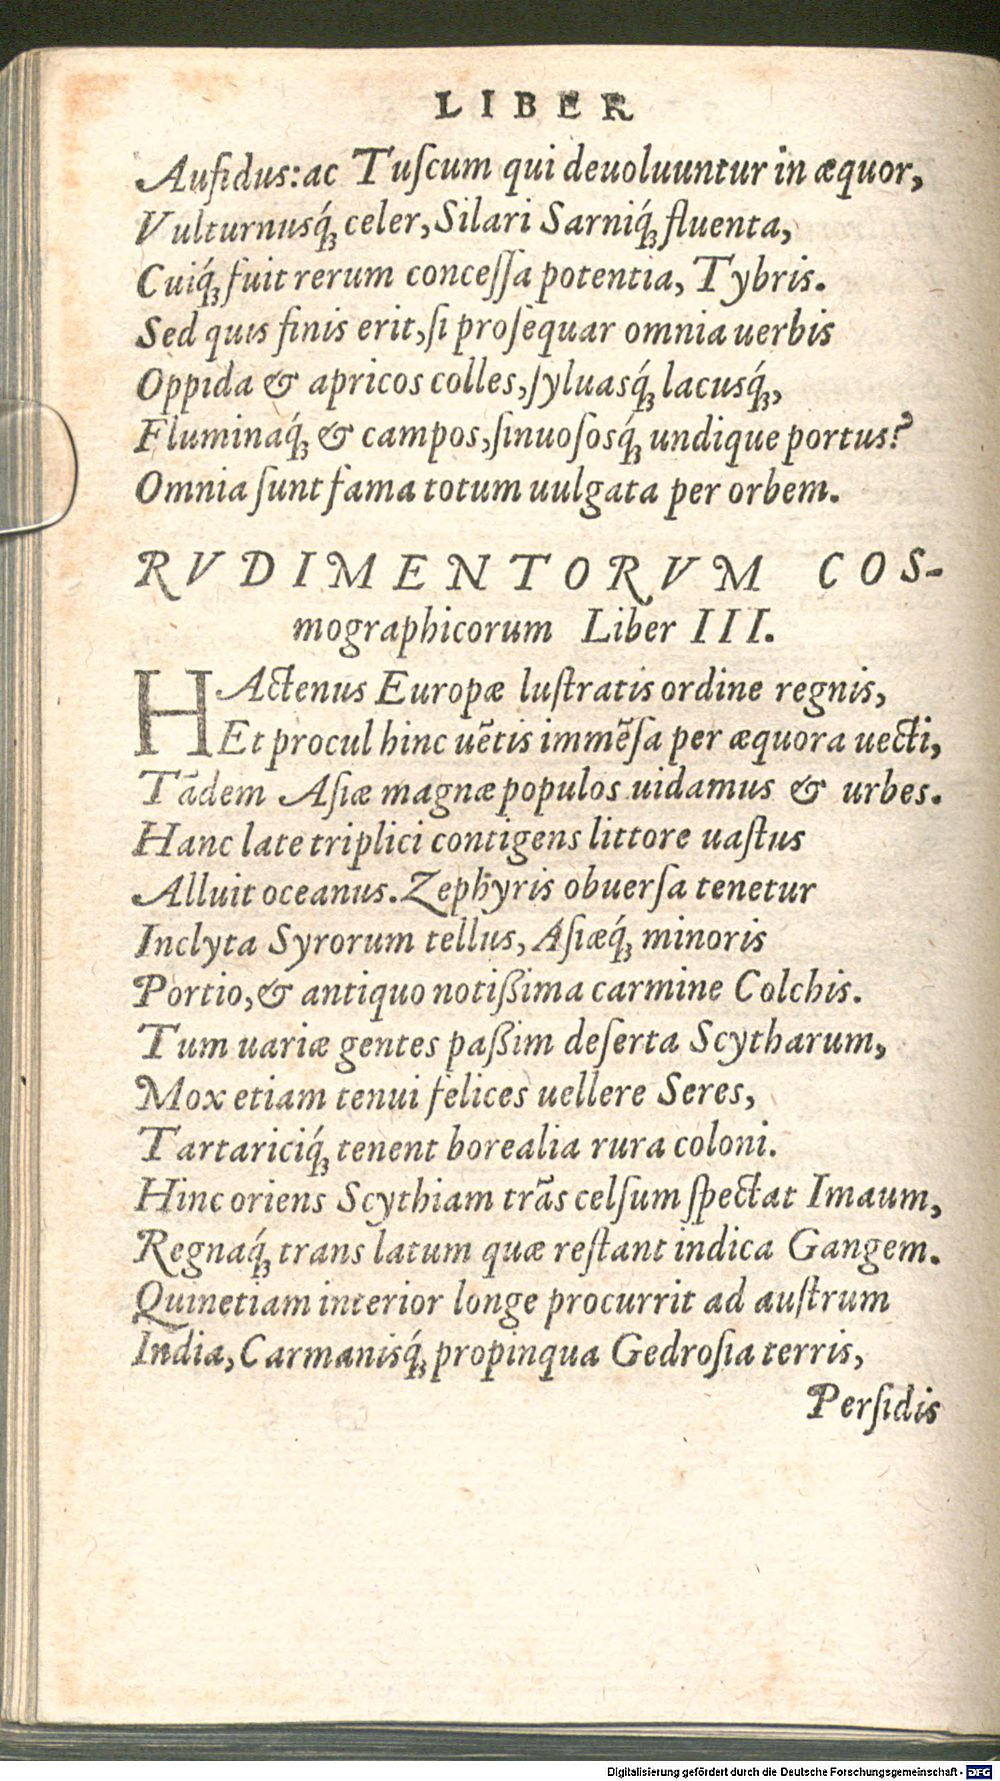 LIBER
Aufidus: ac Tuſcum qui deuoluuntur in æquor,
Vulturnusq́ꝫ celer, Silari Sarniq́ꝫ fluenta,
Cuiq́ꝫ fuit rerum conceſſa potentia, Tybris.
Sed quis finis erit, ſi proſequar omnia uerbis
Oppida & apricos colles, ſyluasq́ꝫ lacusq́ꝫ,
Fluminaq́ꝫ & campos, ſinuoſosq́ꝫ undique portus?
Omnia ſunt fama totum uulgata per orbem.
RVDIMENTORVM COS-
mographicorum Liber III.
HActenus Europæ luſtratis ordine regnis,
Et procul hinc uẽtis immẽſa per æquora uecti,
Tãdem Aſiæ magnæ populos uidamus & urbes.
Hanc late triplici contigens littore uaſtus
Alluit oceanus. Zephyris obuerſa tenetur
Inclyta Syrorum tellus, Aſiæq́ꝫ minoris
Portio, & antiquo notißima carmine Colchis.
Tum uariæ gentes paßim deſerta Scytharum,
Mox etiam tenui felices uellere Seres,
Tartariciq́ꝫ tenent borealia rura coloni.
Hinc oriens Scythiam trãs celſum ſpectat Imaum,
Regnaq́ꝫ trans latum quæ reſtant indica Gangem.
Quinetiam interior longe procurrit ad auſtrum
India, Carmanisq́ꝫ propinqua Gedroſia terris,
Perſidis
Digitalisierung gefördert durch die Deutsche Forschungsgemeinschaft - DFG